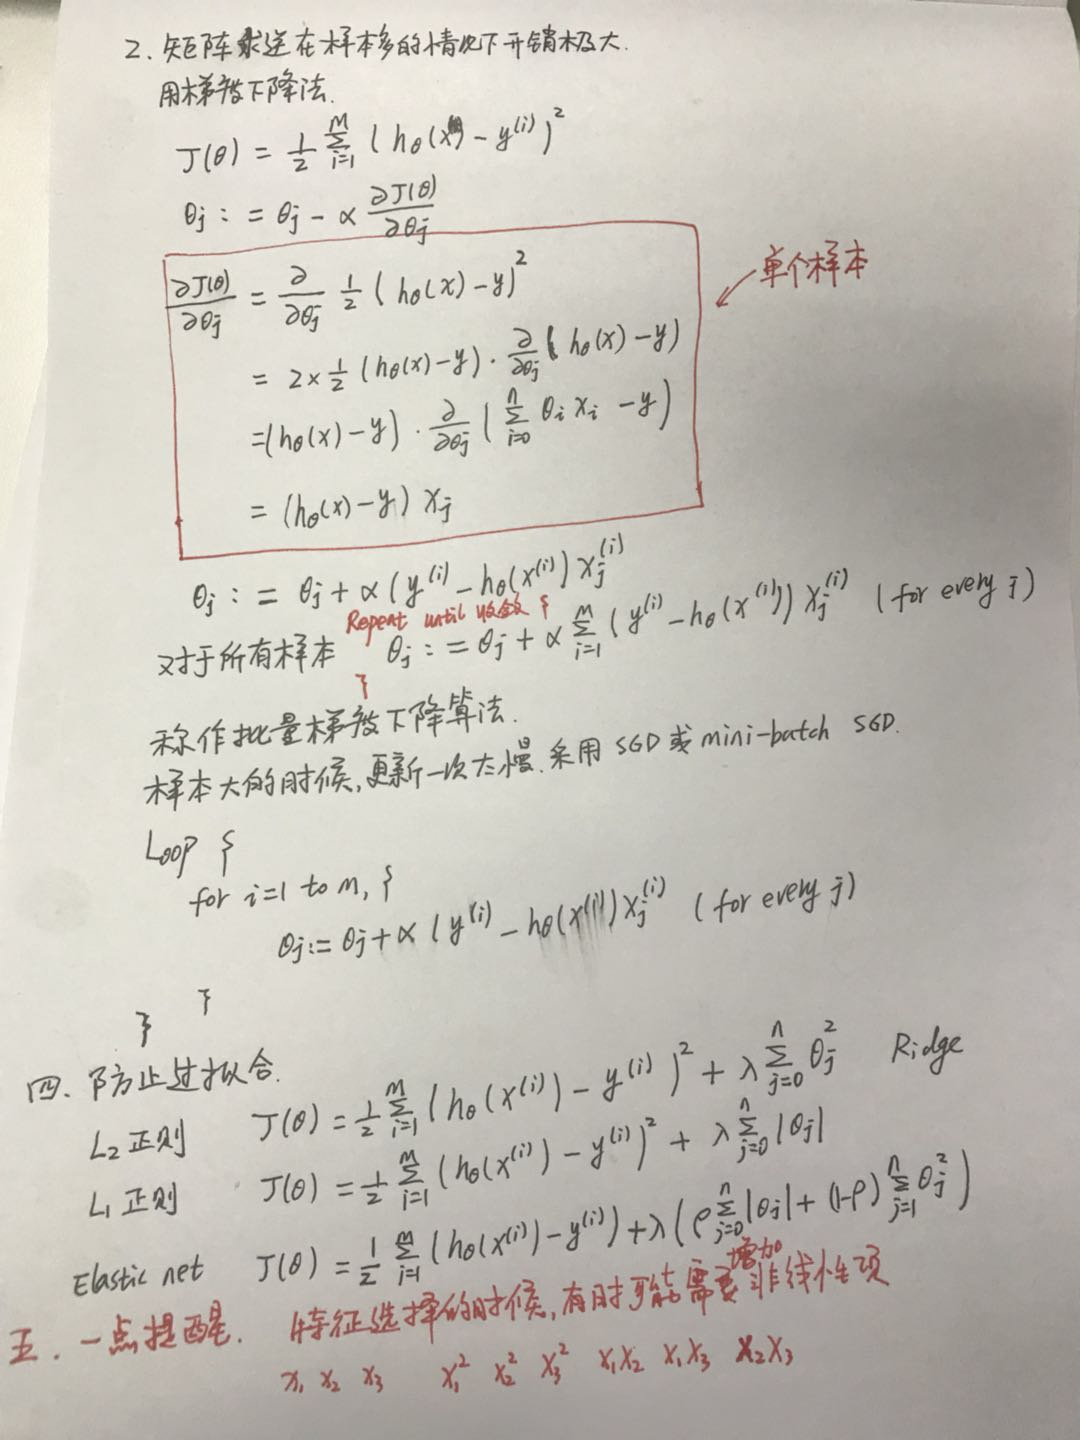 2. 矩阵求逆在样本多的情况下开销极大.
用梯度下降法.
J(θ) = 1/2 Σ_{i=1}^{M} (hθ(x) - y^{(i)})^2
θj := θj - α ∂J(θ)/∂θj
∂J(θ)/∂θj = ∂/∂θj 1/2 (hθ(x) - y)^2
← 单个样本
= 2 × 1/2 (hθ(x) - y) · ∂/∂θj (hθ(x) - y)
= (hθ(x) - y) · ∂/∂θj (Σ_{i=0}^{n} θi xi - y)
= (hθ(x) - y) xj
θj := θj + α (y^{(i)} - hθ(x^{(i)}) xj^{(i)}
Repeat until 收敛 {
对于所有样本 θj := θj + α Σ_{i=1}^{M} (y^{(i)} - hθ(x^{(i)})) xj^{(i)} (for every j)
}
称作批量梯度下降算法.
样本大的时候,更新一次太慢.采用 SGD 或 mini-batch SGD.
Loop {
for i=1 to m, {
θj := θj + α (y^{(i)} - hθ(x^{(i)}) xj^{(i)} (for every j)
}
}
四. 防止过拟合.
L2 正则 J(θ) = 1/2 Σ_{i=1}^{M} (hθ(x^{(i)}) - y^{(i)})^2 + λ Σ_{j=0}^{n} θj^2 Ridge
L1 正则 J(θ) = 1/2 Σ_{i=1}^{M} (hθ(x^{(i)}) - y^{(i)})^2 + λ Σ_{j=0}^{n} |θj|
Elastic net J(θ) = 1/2 Σ_{i=1}^{M} (hθ(x^{(i)}) - y^{(i)}) + λ (ρ Σ_{j=0}^{n} |θj| + (1-ρ) Σ_{j=1}^{n} θj^2)
五. 一点提醒. 特征选择的时候,有时可能需要增加非线性项
x1 x2 x3 x1^2 x2^2 x3^2 x1x2 x1x3 x2x3